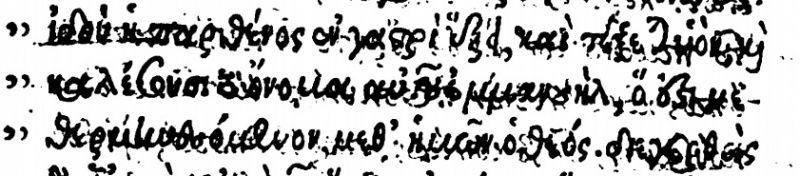 ,, ἰδοὺ ἡ παρθένος ἐν γαστρὶ ἕξει, καὶ τέξεται υἱὸν, καὶ
,, καλέσουσι τὸ ὄνομα αὐτοῦ ἐμμανουὴλ, ὅ ἐστι με-
,, θερμηνευόμενον, μεθ' ἡμῶν ὁ θεός. διεγερθεὶς